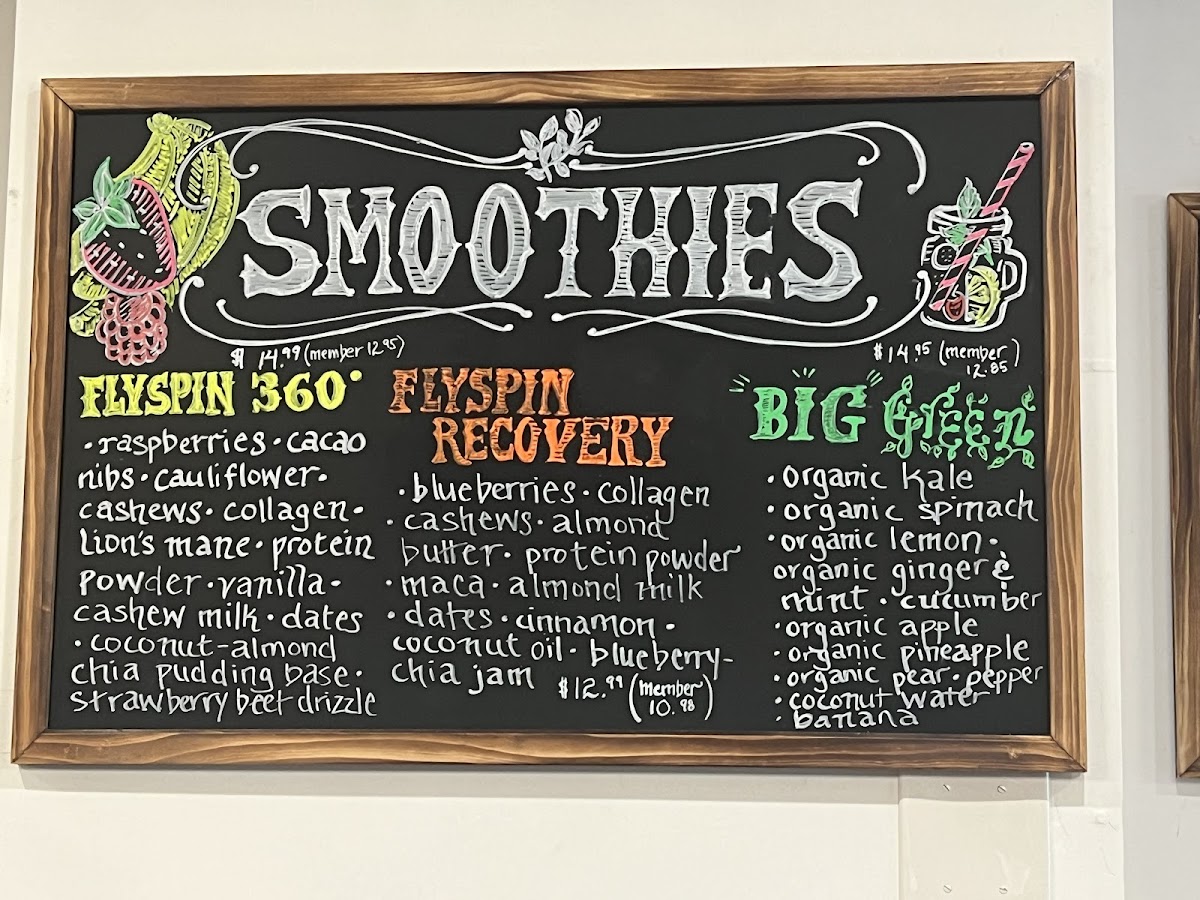 SMOOTHIES
$14.99 (member 12.95)
FLYSPIN 360°
• raspberries • cacao
nibs • cauliflower •
cashews • collagen •
Lion's mane • protein
powder • vanilla •
cashew milk • dates
• coconut-almond
chia pudding base •
strawberry beet drizzle
FLYSPIN
RECOVERY
• blueberries • collagen
• cashews • almond
butter • protein powder
• maca • almond milk
• dates • cinnamon •
coconut oil • blueberry-
chia jam
$12.99 (member
10.98)
$14.95 (member)
12.85
BIG GREEN
• organic kale
• organic spinach
• organic lemon •
organic ginger &
mint • cucumber
• organic apple
• organic pineapple
• organic pear • pepper
• coconut water
• banana